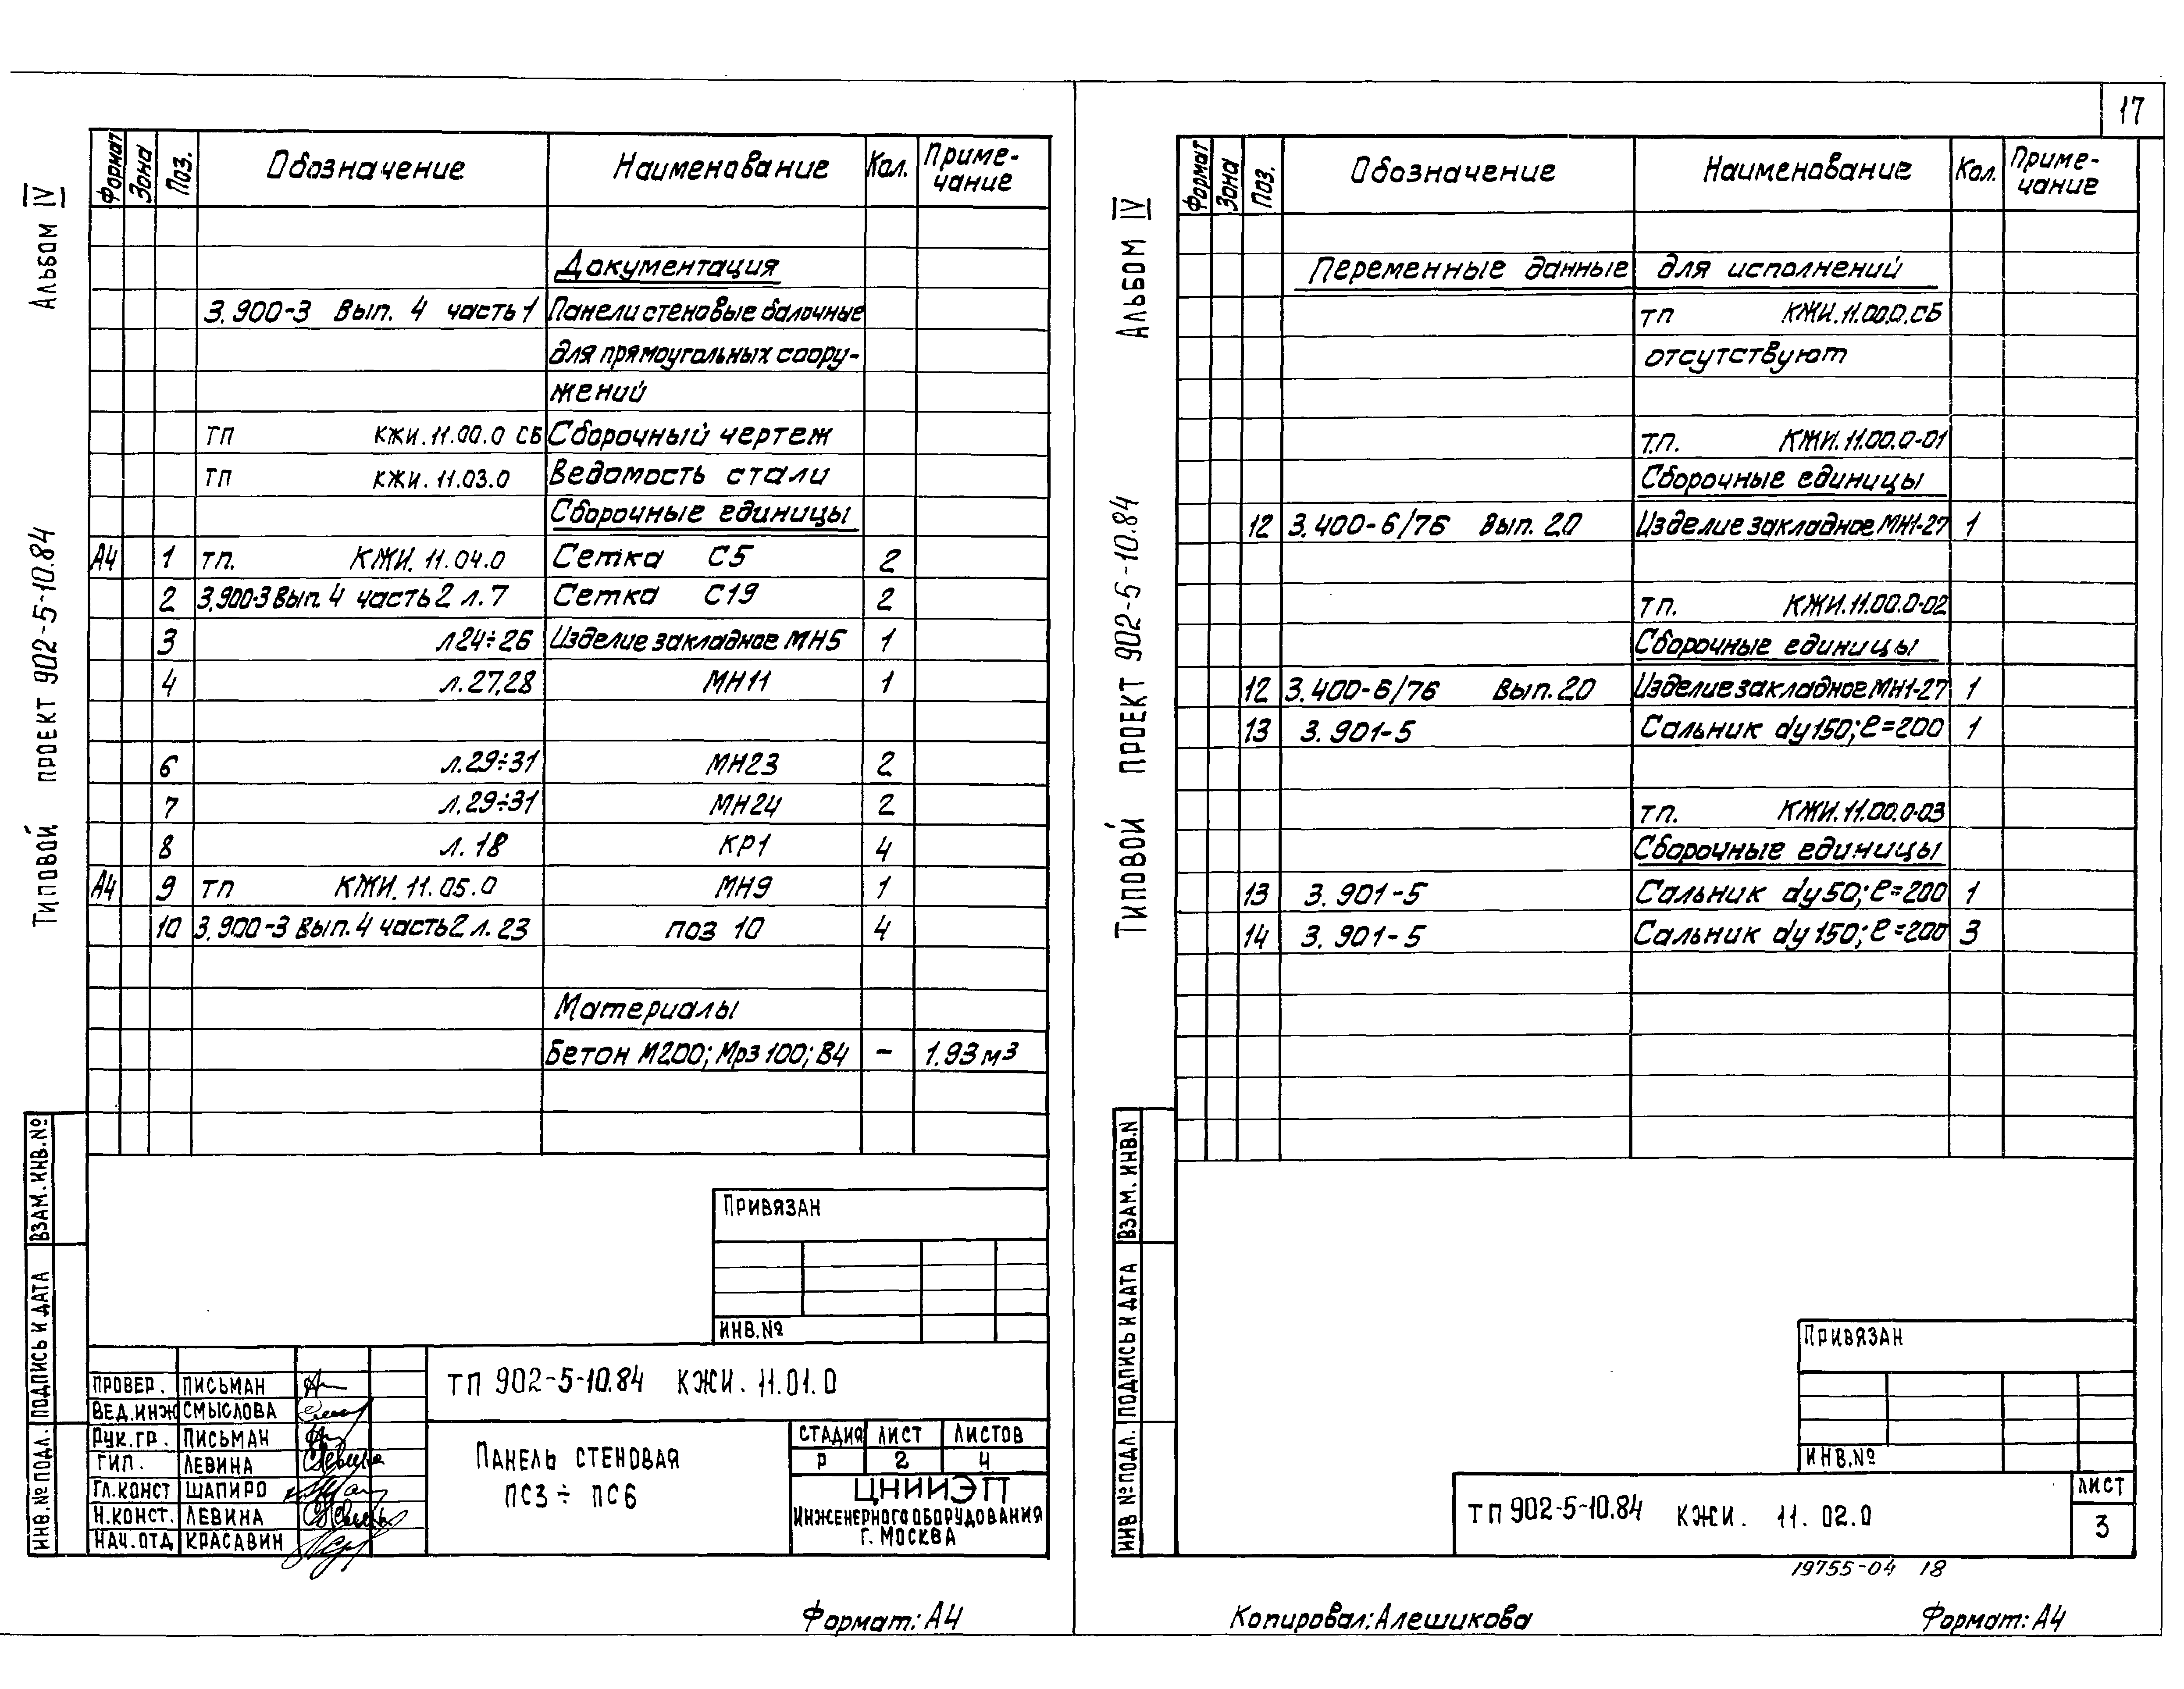 17
Альбом IV
Типовой проект 902-5-10.84
Формат Зона Поз. Обозначение Наименование Кол. Приме-
чание
Документация
3.900-3 Вып. 4 часть 1 Панели стеновые балочные
для прямоугольных соору-
жений
ТП КЖИ.11.00.0 СБ Сборочный чертеж
ТП КЖИ.11.03.0 Ведомость стали
Сборочные единицы
А4 1 ТП. КЖИ.11.04.0 Сетка С5 2
2 3.900-3 Вып. 4 часть 2 л.7 Сетка С19 2
3 л24÷26 Изделие закладное МН5 1
4 л.27,28 МН11 1
6 л.29÷31 МН23 2
7 л.29÷31 МН24 2
8 л. 18 КР1 4
А4 9 ТП КЖИ.11.05.0 МН9 1
10 3.900-3 Вып.4 часть 2 л.23 поз 10 4
Материалы
Бетон М200; Мрз 100; В4 – 1.93 м3
Привязан
ИНВ.№
Взам. инв.№
Подпись и дата
Инв.№ подл.
Провер. Письман
Вед.инж Смыслова
Рук.гр. Письман
ГИП. Левина
Гл.конст Шапиро
Н.конст. Левина
Нач.отд Красавин
ТП 902-5-10.84 КЖИ. 11.01.0
Панель стеновая
ПС3 ÷ ПС6
Стадия Лист Листов
Р 2 4
ЦНИИЭП
Инженерного оборудования
г. Москва
Формат: А4
Альбом IV
Типовой проект 902-5-10.84
Формат Зона Поз. Обозначение Наименование Кол. Приме-
чание
Переменные данные для исполнений
ТП КЖИ.11.00.0.СБ
отсутствуют
Т.П. КЖИ.11.00.0-01
Сборочные единицы
12 3.400-6/76 Вып. 20 Изделие закладное МН1-27 1
ТП. КЖИ.11.00.0-02
Сборочные единицы
12 3.400-6/76 Вып.20 Изделие закладное МН1-27 1
13 3.901-5 Сальник dy150; ℓ=200 1
ТП. КЖИ.11.00.0-03
Сборочные единицы
13 3.901-5 Сальник dy50; ℓ=200 1
14 3.901-5 Сальник dy150; ℓ=200 3
Взам. инв.N
Подпись и дата
Инв №подл.
Привязан
ИНВ.№
ТП 902-5-10.84 КЖИ. 11. 02.0
Лист
3
19755-04 18
Копировал: Алешикова
Формат: А4